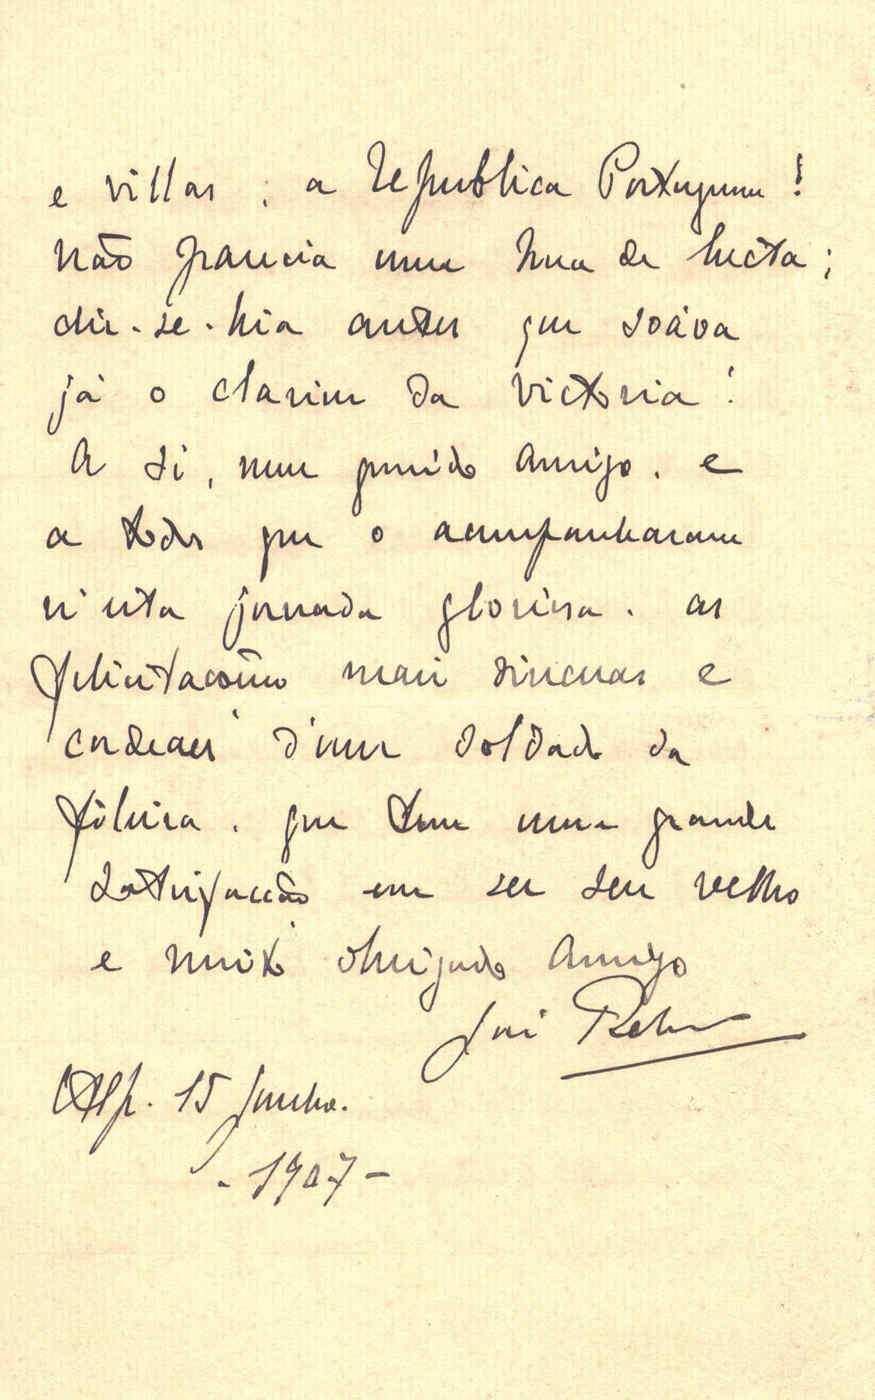 e villas, a Republica Portuguesa!
Não parecia uma hora de lucta;
dir-se-hia antes que soáva
já o clarim da victoria!
A si, meu querido amigo, e
a todos que o acompanharam
n'esta jornada gloriosa, as
felicitações mais sinceras e
cordeaes d'um soldado da
fileira, que tem uma grande
satisfacção em ser seu velho
e muito obrigado amigo
José Relvas
Alp. 15 Junho.
- 1907 -